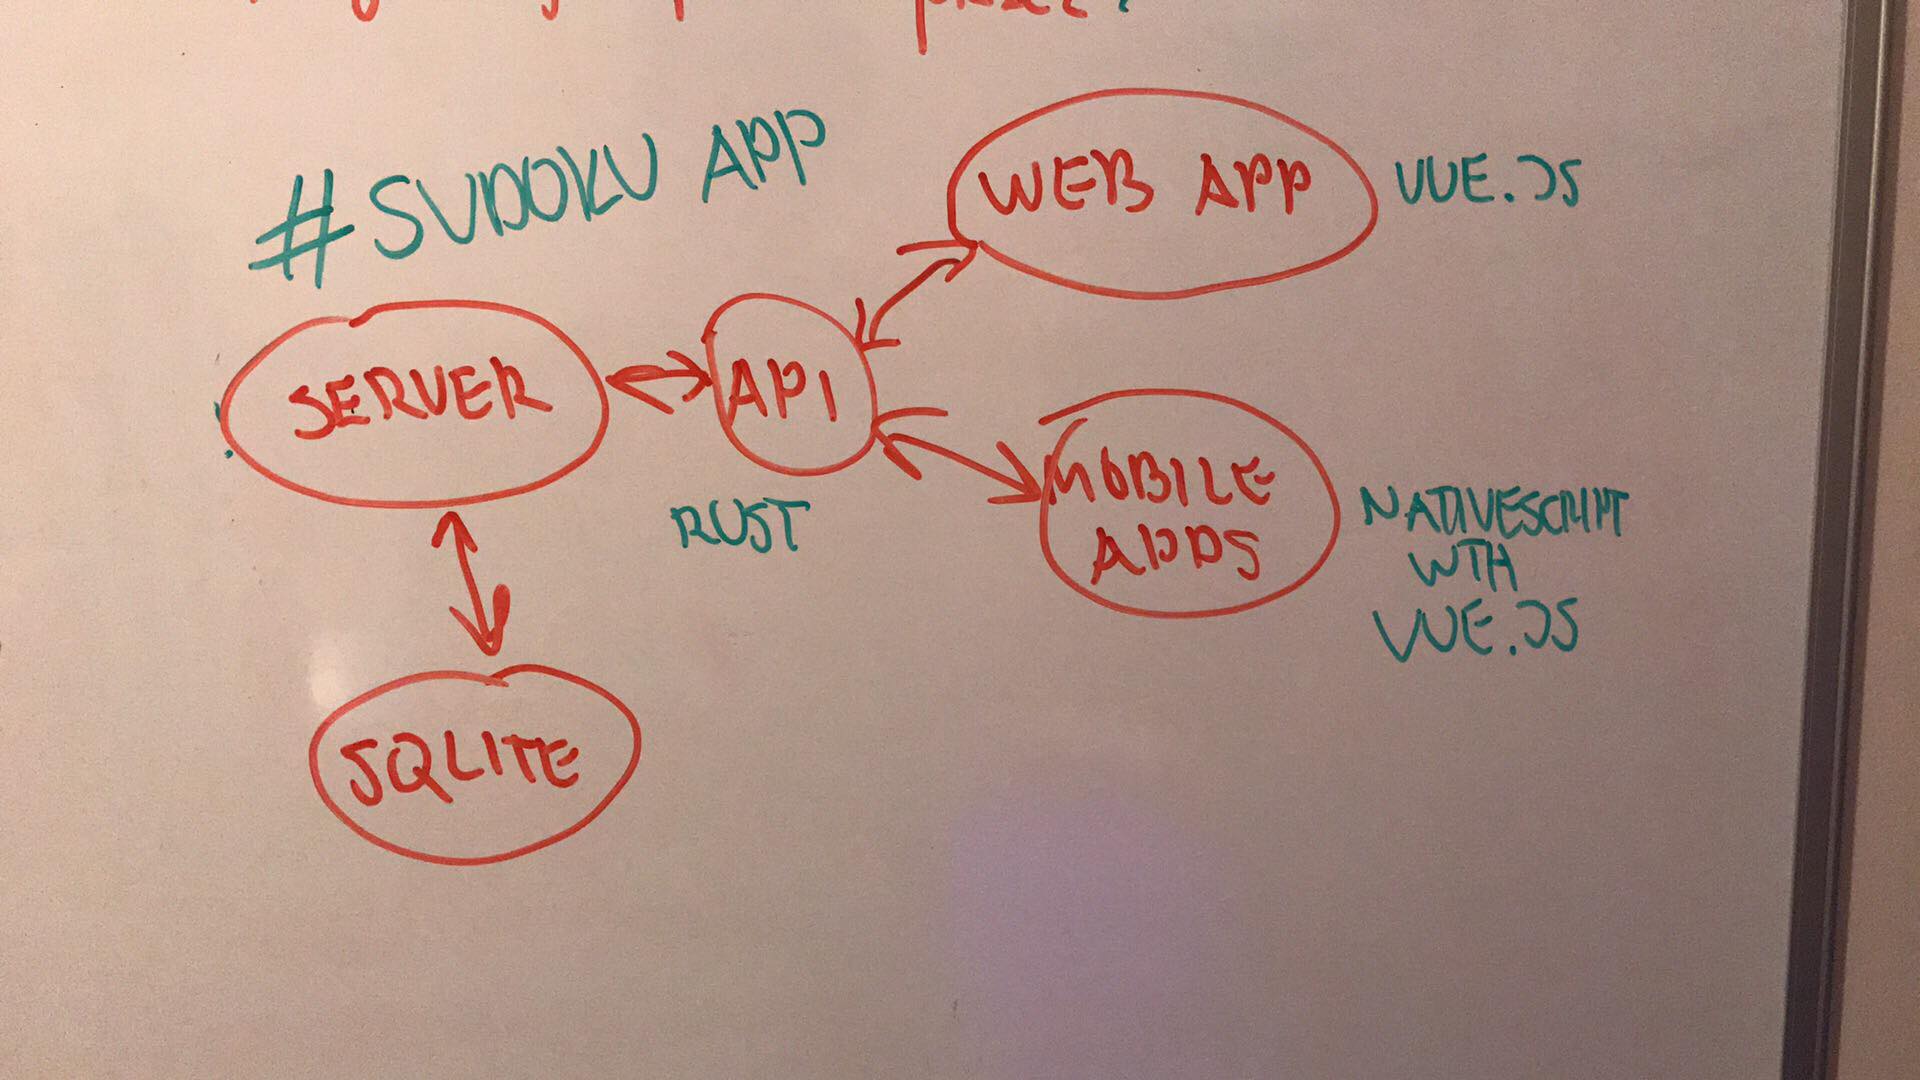 #SUDOKU APP
WEB APP
VUE.JS
SERVER
API
MOBILE
APPS
RUST
NATIVESCRIPT
WTH
VUE.JS
SQLITE